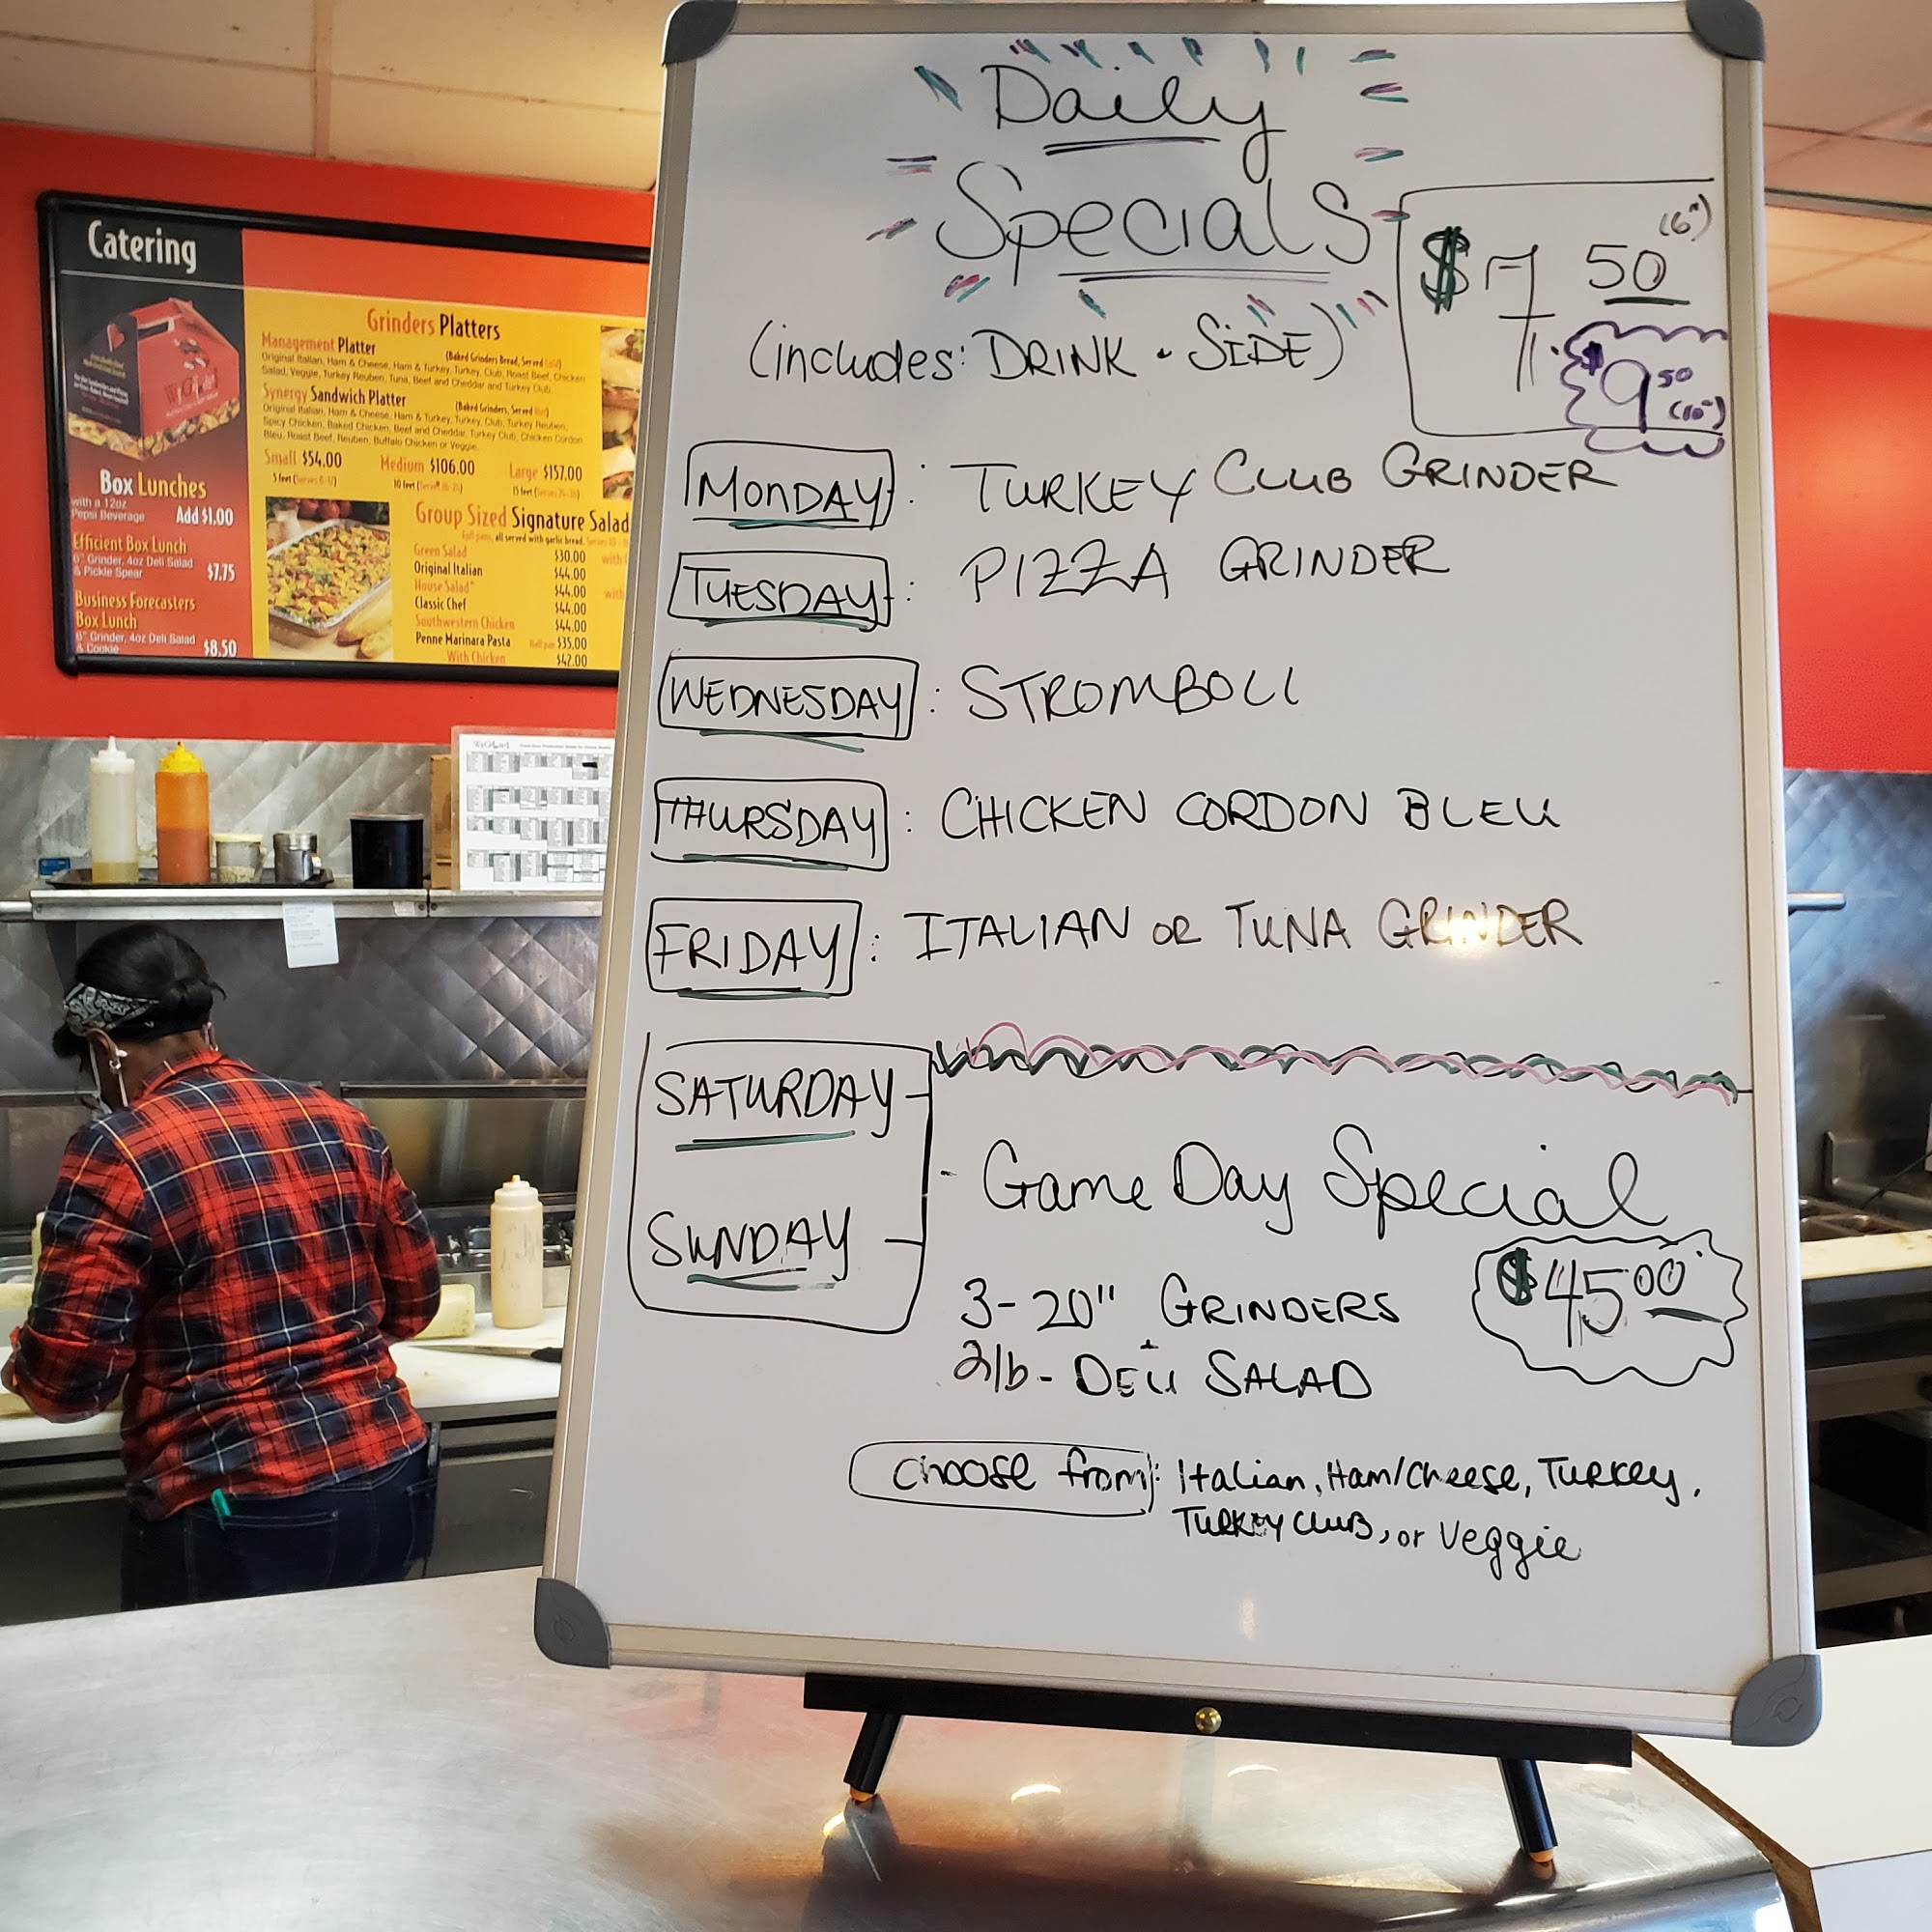 Daily
Specials
(includes: DRINK + SIDE)
$7.50 (6")
$9.50 (10")
MONDAY: TURKEY CLUB GRINDER
TUESDAY: PIZZA GRINDER
WEDNESDAY: STROMBOLI
THURSDAY: CHICKEN CORDON BLEU
FRIDAY: ITALIAN OR TUNA GRINDER
SATURDAY
SUNDAY
- Game Day Special
$45.00
3-20" GRINDERS
2lb- DELI SALAD
choose from: Italian, Ham/Cheese, Turkey,
Turkey Club, or Veggie
Catering
Box Lunches
with a 12oz
Pepsi Beverage Add $1.00
Efficient Box Lunch
6" Grinder, 4oz Deli Salad
& Pickle Spear $7.75
Business Forecasters
Box Lunch
6" Grinder, 4oz Deli Salad
& Cookie $8.50
Grinders Platters
Management Platter (Baked Grinders Bread, Served Cold)
Original Italian, Ham & Cheese, Ham & Turkey, Turkey, Club, Roast Beef, Chicken
Salad, Veggie, Turkey Reuben, Tuna, Beef and Cheddar and Turkey Club.
Synergy Sandwich Platter (Baked Grinders, Served Hot)
Original Italian, Ham & Cheese, Ham & Turkey, Turkey, Club, Turkey Reuben,
Spicy Chicken, Baked Chicken, Beef and Cheddar, Turkey Club, Chicken Cordon
Bleu, Roast Beef, Reuben, Buffalo Chicken or Veggie.
Small $54.00 Medium $106.00 Large $157.00
5 feet 10 feet 15 feet
Group Sized Signature Salad
Full pans, all served with garlic bread.
Green Salad $30.00
Original Italian $44.00
House Salad* $44.00
Classic Chef $44.00
Southwestern Chicken $44.00
Penne Marinara Pasta Half pan $35.00
With Chicken $42.00